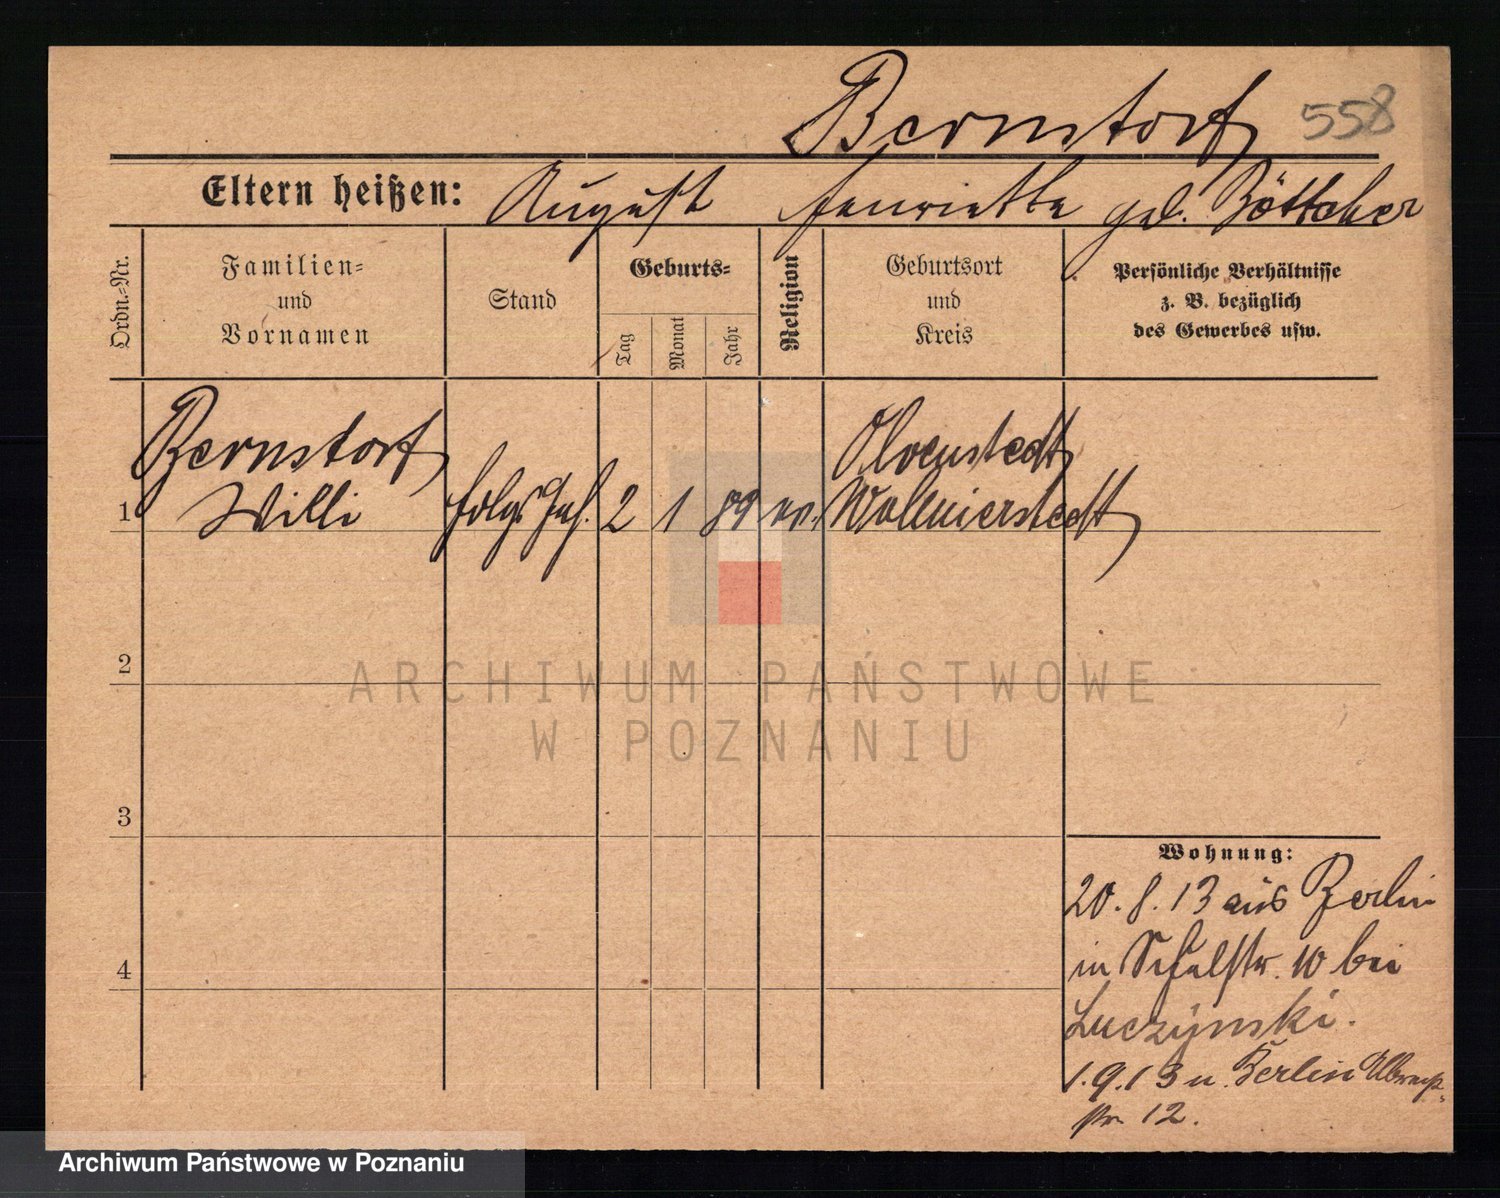 Bernstorf 558
Eltern heißen: August Henriette geb. Böttcher
Ordn.-Nr.
Familien-
und
Vornamen
Stand
Geburts-
Tag
Monat
Jahr
Religion
Geburtsort
und
Kreis
Persönliche Verhältnisse
z. B. bezüglich
des Gewerbes usw.
Bernstorf
Olvenstedt
1 Willi 2 1 89 ev. Wollmierstedt
2
3
4
ARCHIWUM PAŃSTWOWE
W POZNANIU
Wohnung:
20. 8. 13 aus Berlin
in Schulstr. 10 bei
Luczynski.
1. 9. 13 n. Berlin
str 12.
Archiwum Państwowe w Poznaniu